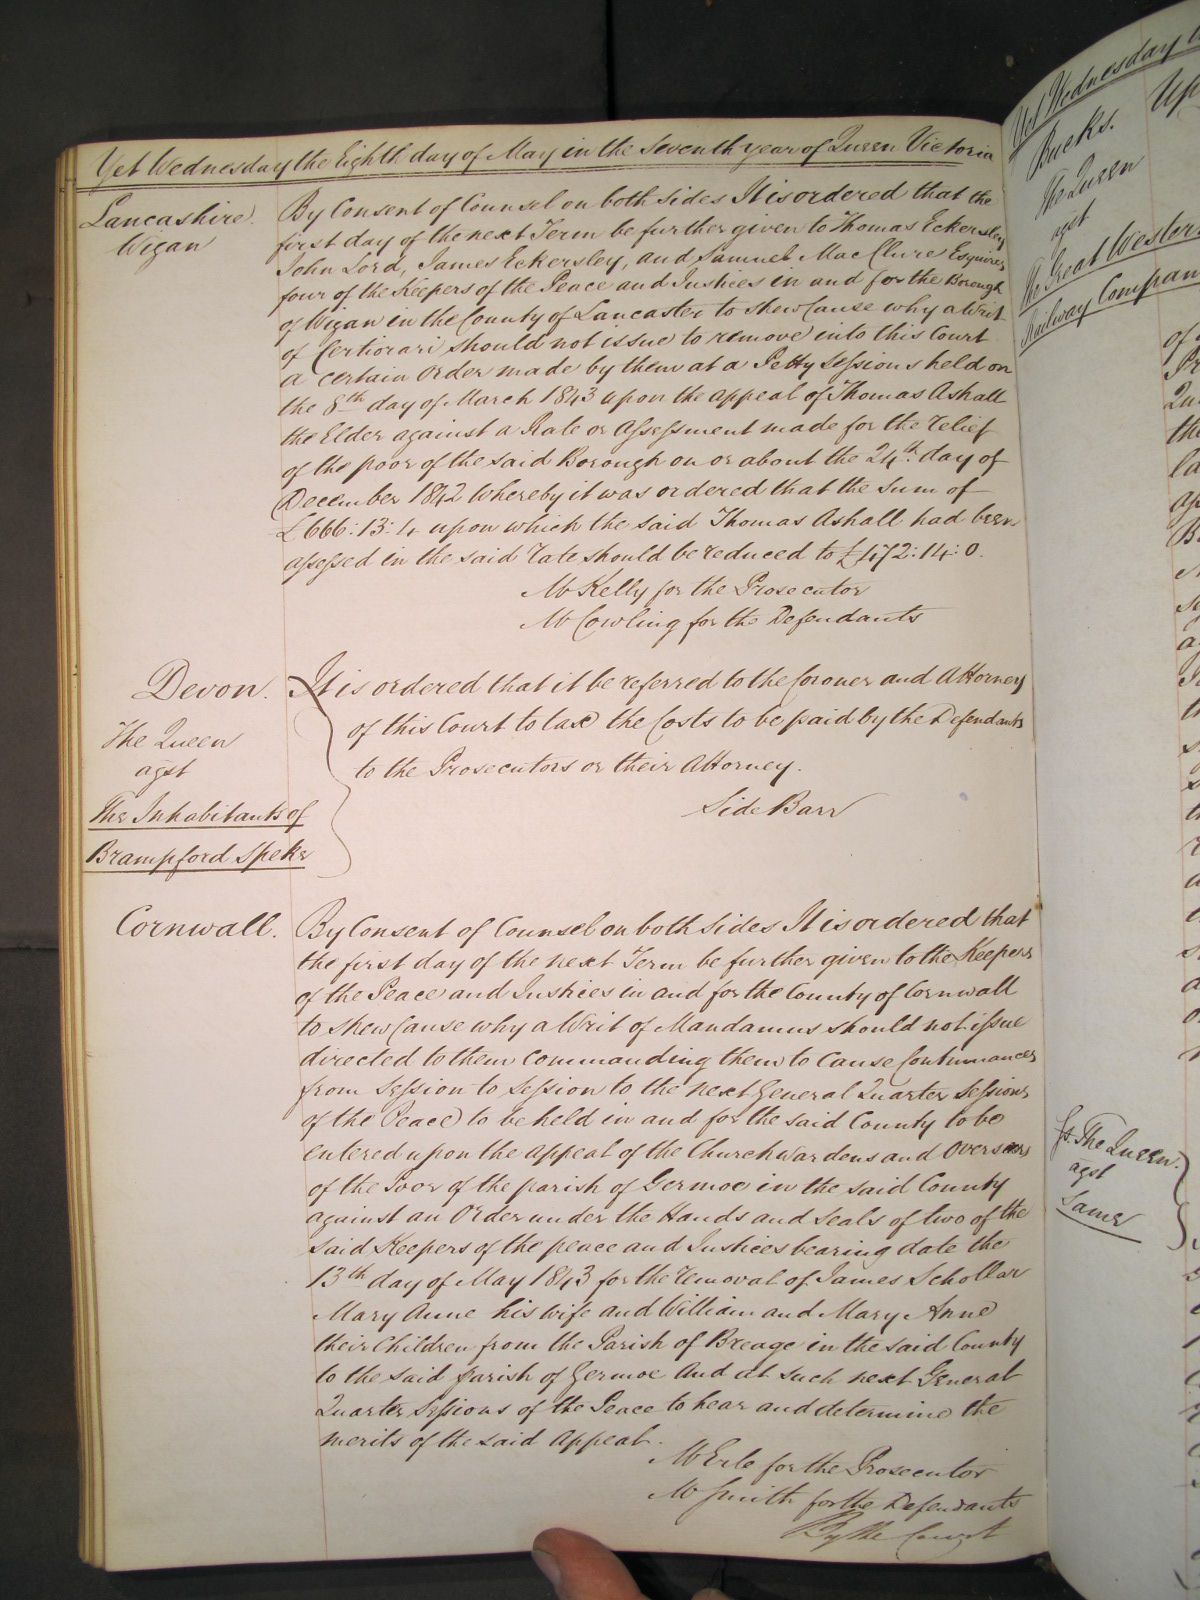 Yet Wednesday the Eighth day of May in the Seventh year of Queen Victoria
Lancashire.
Wigan
By Consent of Counsel on both sides It is ordered that the
first day of the next Term be further given to Thomas Eckersley
John Lord, James Eckersley, and Samuel MacClure Esquires
four of the Keepers of the Peace and Justices in and for the Borough
of Wigan in the County of Lancaster to shew Cause why a Writ
of Certiorari should not issue to remove into this Court
a certain Order made by them at a Petty Sessions held on
the 8th day of March 1843 upon the appeal of Thomas Ashall
the Elder against a Rate or Assessment made for the relief
of the poor of the said Borough on or about the 24th day of
December 1842 Whereby it was ordered that the sum of
£666:13:4 upon which the said Thomas Ashall had been
assessed in the said rate should be reduced to £472:14:0.
Mr Kelly for the Prosecutor
Mr Cowling for the Defendants
Devon.
The Queen
agst
The Inhabitants of
Brampford Speke
It is ordered that it be referred to the Coroner and Attorney
of this Court to tax the Costs to be paid by the Defendants
to the Prosecutors or their Attorney.
Side Barr
Cornwall.
By Consent of Counsel on both sides It is ordered that
the first day of the next Term be further given to the Keepers
of the Peace and Justices in and for the County of Cornwall
to shew Cause why a Writ of Mandamus should not issue
directed to them Commanding them to Cause Continuances
from Session to Session to the next General Quarter Sessions
of the Peace to be held in and for the said County to be
entered upon the appeal of the Churchwardens and Overseers
of the Poor of the parish of Germoe in the said County
against an Order under the Hands and Seals of two of the
said Keepers of the peace and Justices bearing date the
13th day of May 1843 for the removal of James Schollar
Mary Anne his wife and William and Mary Anne
their Children from the Parish of Breage in the said County
to the said parish of Germoe And at such next General
Quarter Sessions of the Peace to hear and determine the
merits of the said Appeal.
Mr Erle for the Prosecutor
Mr Smith for the Defendants
By the Court
Yet Wednesday
Bucks.
The Queen
agst
The Great Western
Railway Company
Up
The Queen
agst
Same